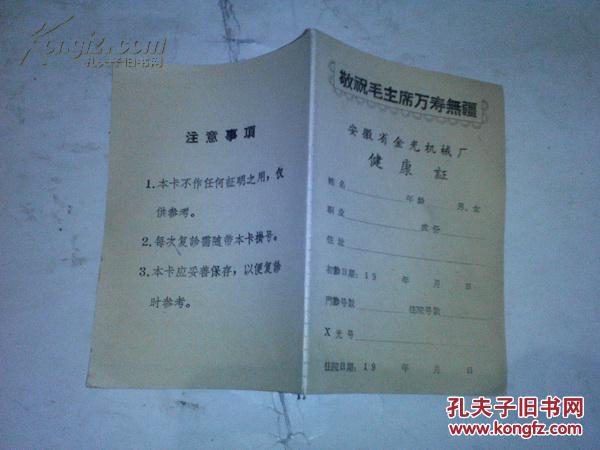 Kongfz.com
孔夫子旧书网
注意事項
1.本卡不作任何証明之用，仅
供参考。
2.每次复診需随带本卡掛号。
3.本卡应妥善保存，以便复診
时参考。
敬祝毛主席万寿無疆
安徽省金光机械厂
健康証
姓名 年龄 男、女
职业 成份
住址
初診日期：19 年 月 日
門診号数 住院号数
X光号
住院日期：19 年 月 日
孔夫子旧书网
www.kongfz.com